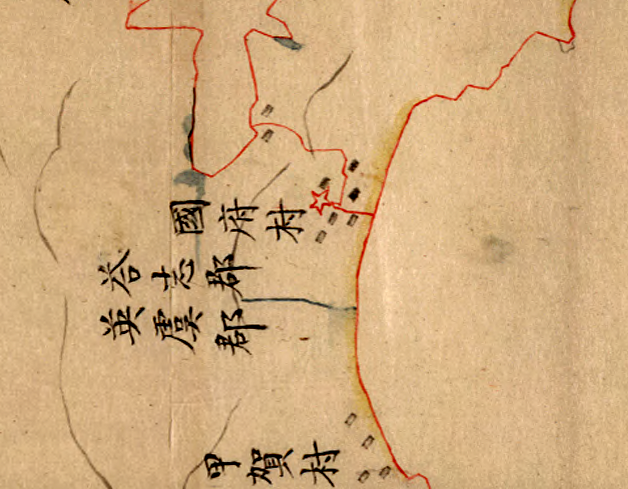 國府村
荅志郡
英虞郡
甲賀村